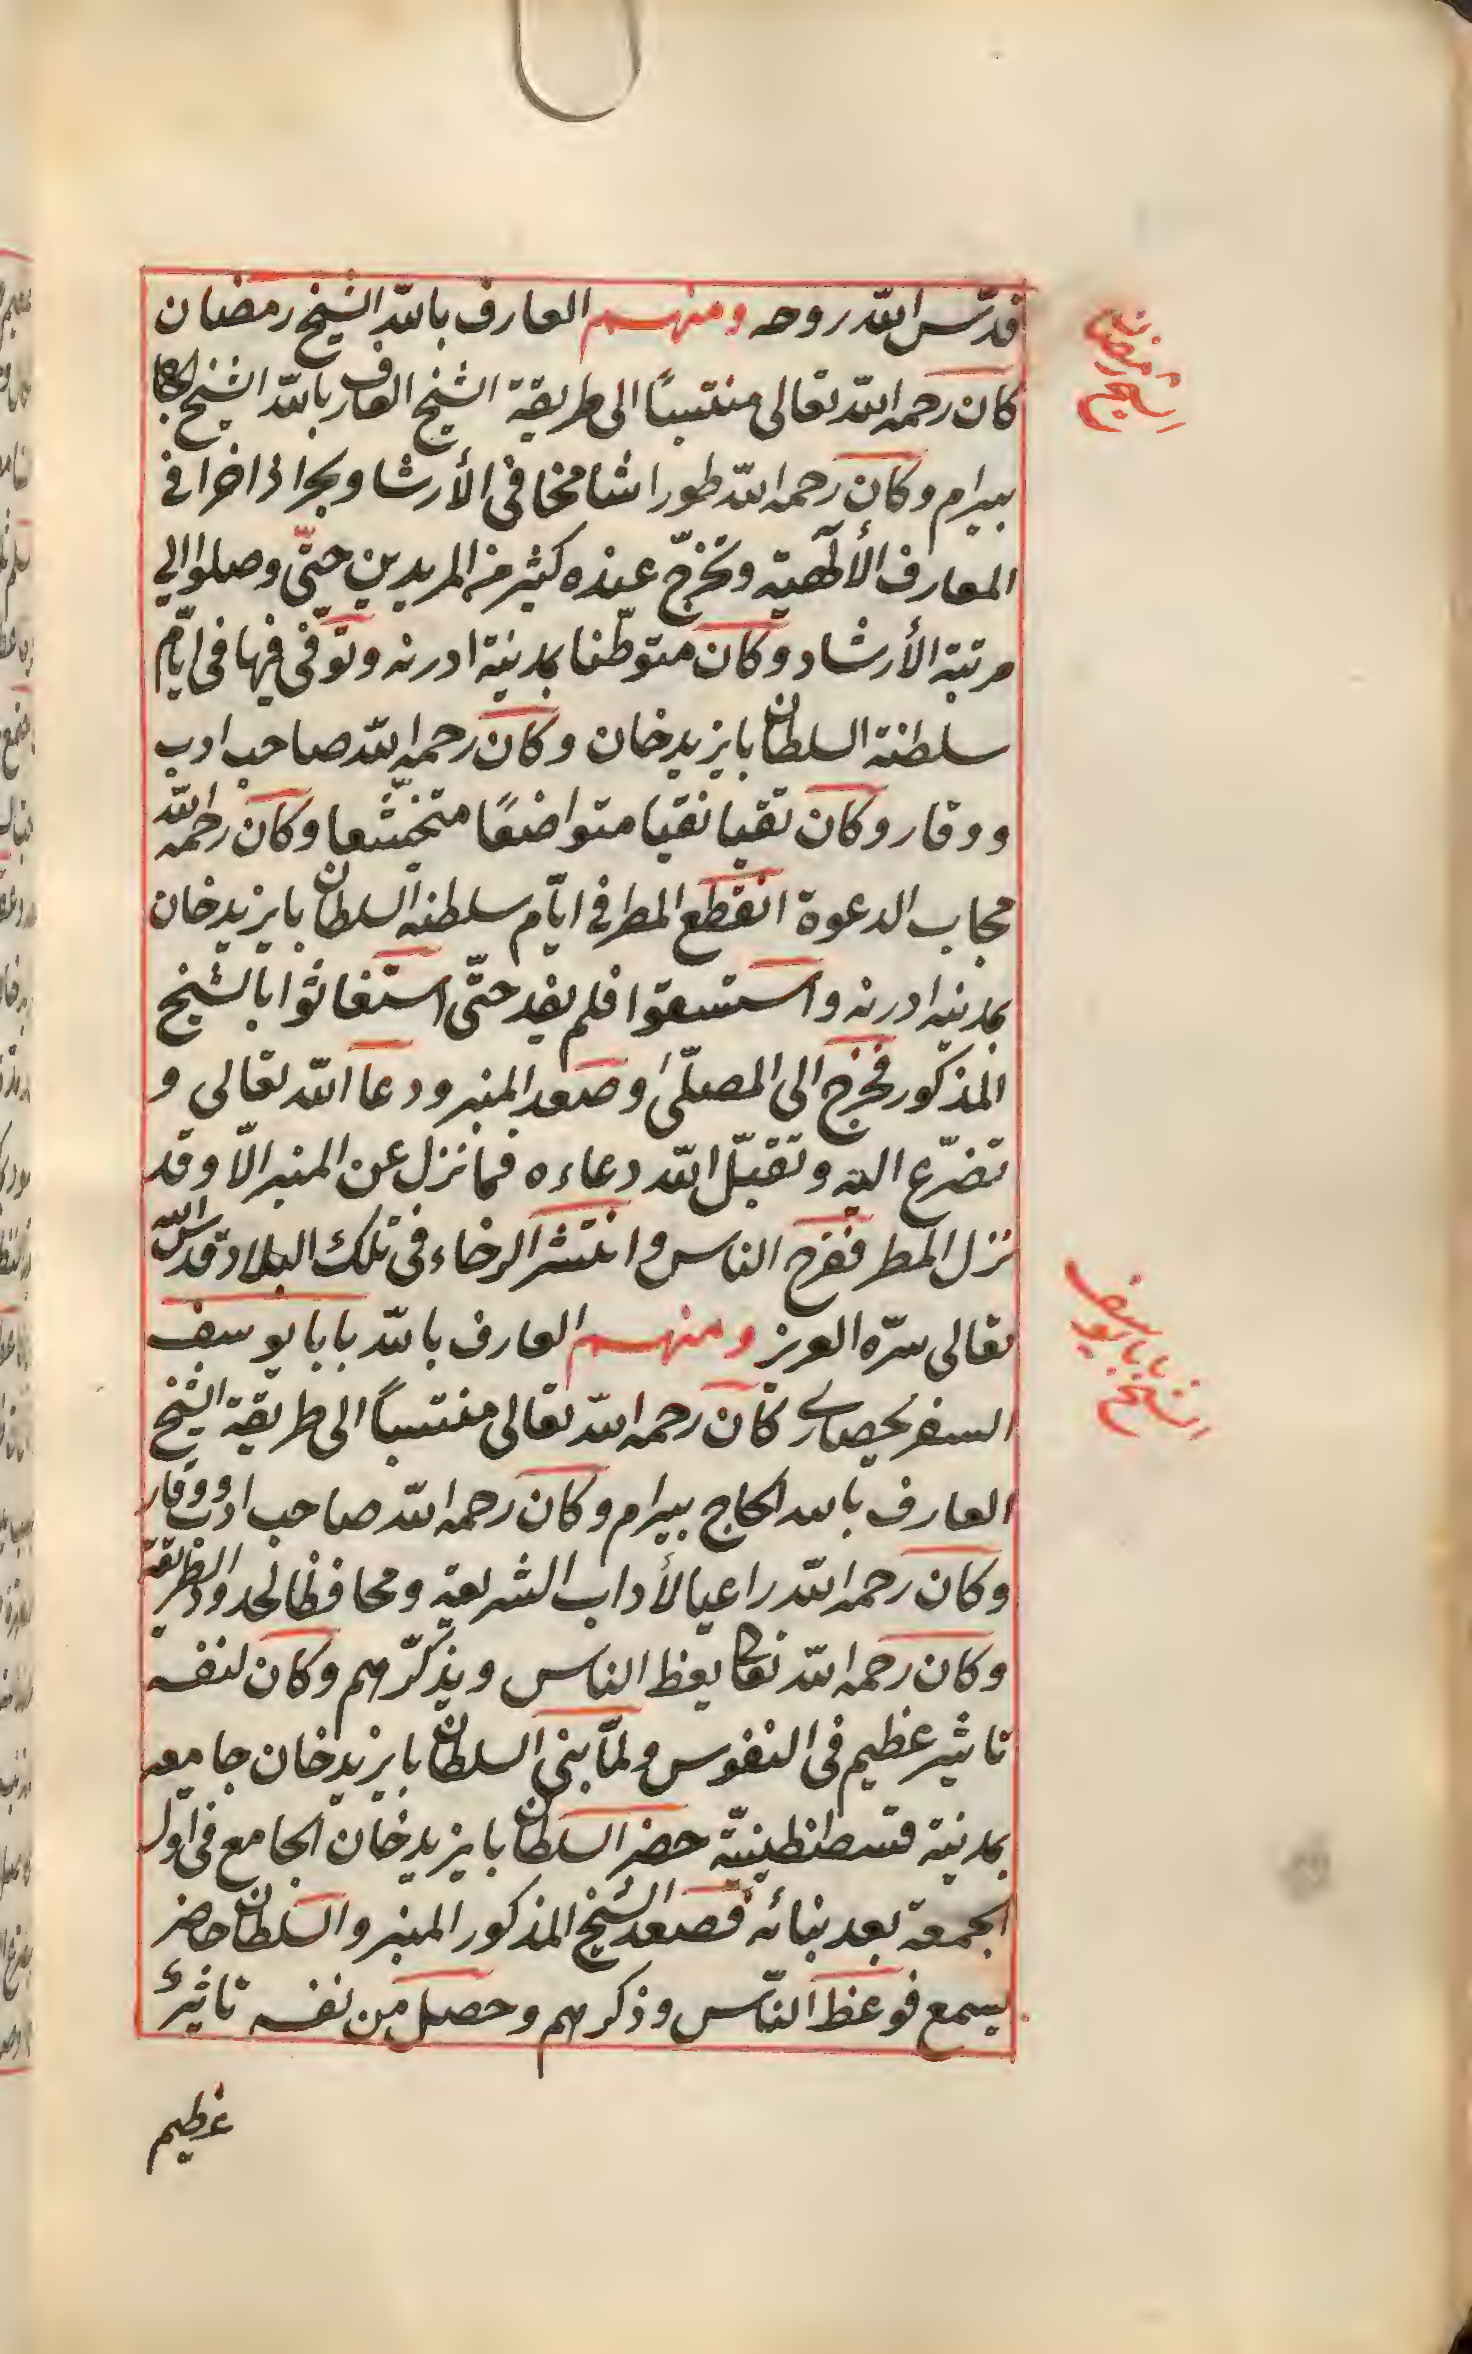 قدّس الله روحه ومنهم العارف بالله الشيخ رمضان
الشيخ رمضان
كان رحمه الله تعالى منتسبًا الى طريقة الشيخ العارف بالله الشيخ الحاج
بيرام وكان رحمه الله طورا شامخا في الأرشا وبحرا ذاخرا في
المعارف الألٓهية وتخرّج عنده كثير من المريدين حتّى وصلوا الي
مرتبة الأرشاد وكان متوطّنا بمدينة ادرنه وتوّفى فيها في ايّام
سلطنة السلطان بايزيد خان وكان رحمه الله صاحب ادب
ووقار وكان تقيا نقيا متواضعًا متخشّعا وكان رحمه الله
مجاب الدعوة انقطع المطر في ايّام سلطنة السلطان بايزيد خان
بمدينه ادرنه واستسقوا فلم يفد حتّى استغاثوا بالشيخ
المذكور فخرج الى المصلّى وصعد المنبر ودعا الله تعالى و
تضرّع اليه وتقبّل الله دعاءه فما نزل عن المنبر الّا وقد
نزل المطر ففرح الناس وانتشر الرخاء في تلك البلاد قدس الله
تعالى سرّه العزيز ومنهم العارف بالله بابا يوسف
الشيخ بابا يوسف
السفريحصاري كان رحمه الله تعالى منتسبًا الى طريقة الشيخ
العارف بالله الحاج بيرام وكان رحمه الله صاحب ادب ووقار
وكان رحمه الله راعيا لأداب الشريعة ومحافظا لحدود الطريقة
وكان رحمه الله تعالى يعظ الناس ويذكّرهم وكان لنفسه
تاثير عظيم في النفوس ولمّا بنى السلطان بايزيد خان جامعه
بمدينة قسطنطينيّة حضر السلطان بايزيد خان الجامع في اول
الجمعة بعد بنائه فصعد الشيخ المذكور المنبر والسلطان حاضر
يسمع فوعظ النّاس وذكرهم وحصل من نفسه تاثيرٌ
عظيم